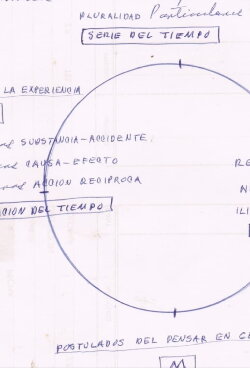 PLURALIDAD Particulares
SERIE DEL TIEMPO
LA EXPERIENCIA
SUBSTANCIA-ACCIDENTE
CAUSA-EFECTO
ACCION RECIPROCA
CION DEL TIEMPO
RE
N
ILI
POSTULADOS DEL PENSAR EN
M